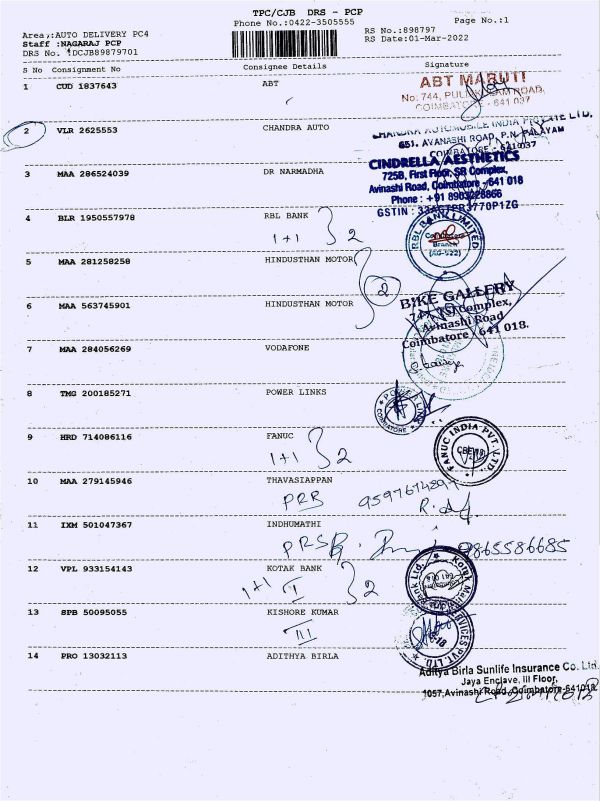 TPC/CJB DRS - PCP
Phone No.:0422-3505555
Page No.:1
Area,:AUTO DELIVERY PC4
RS No.:898797
Staff :NAGARAJ PCP
RS Date:01-Mar-2022
DRS No. :DCJB89879701
S No Consignment No Consignee Details Signature
1 CUD 1837643 ABT
ABT MARUTI
No: 744, PULIAKULAM ROAD,
COIMBATORE - 641 037
2 VLR 2625553 CHANDRA AUTO
CHANDRA AUTOMOBILE INDIA PRIVATE LTD.
651, AVANASHI ROAD, P.N. PALAYAM
COIMBATORE - 641037
3 MAA 286524039 DR NARMADHA
CINDRELLA AESTHETICS
725B, First Floor, SR Complex,
Avinashi Road, Coimbatore -641 018
Phone : +91 8903228866
GSTIN :
4 BLR 1950557978 RBL BANK
1+1 2
RBL BANK LIMITED
Coimbatore
Branch
5 MAA 281258258 HINDUSTHAN MOTOR
2
6 MAA 563745901 HINDUSTHAN MOTOR
BIKE GALLERY
Complex,
Avinashi Road
Coimbatore - 641 018.
7 MAA 284056269 VODAFONE
8 TMG 200185271 POWER LINKS
POWER LINKS
COIMBATORE
9 HRD 714086116 FANUC
1+1 2
FANUC INDIA PVT. LTD.
10 MAA 279145946 THAVASIAPPAN
PRB
11 IXM 501047367 INDHUMATHI
9865586685
12 VPL 933154143 KOTAK BANK
1+1 II 2
Kotak Mahindra Bank Ltd.
13 SPB 50095055 KISHORE KUMAR
III
SERVICES PVT. LTD
14 PRO 13032113 ADITHYA BIRLA
Aditya Birla Sunlife Insurance Co. Ltd.
Jaya Enclave, III Floor,
1057,Avinashi Road, Coimbatore-641018.